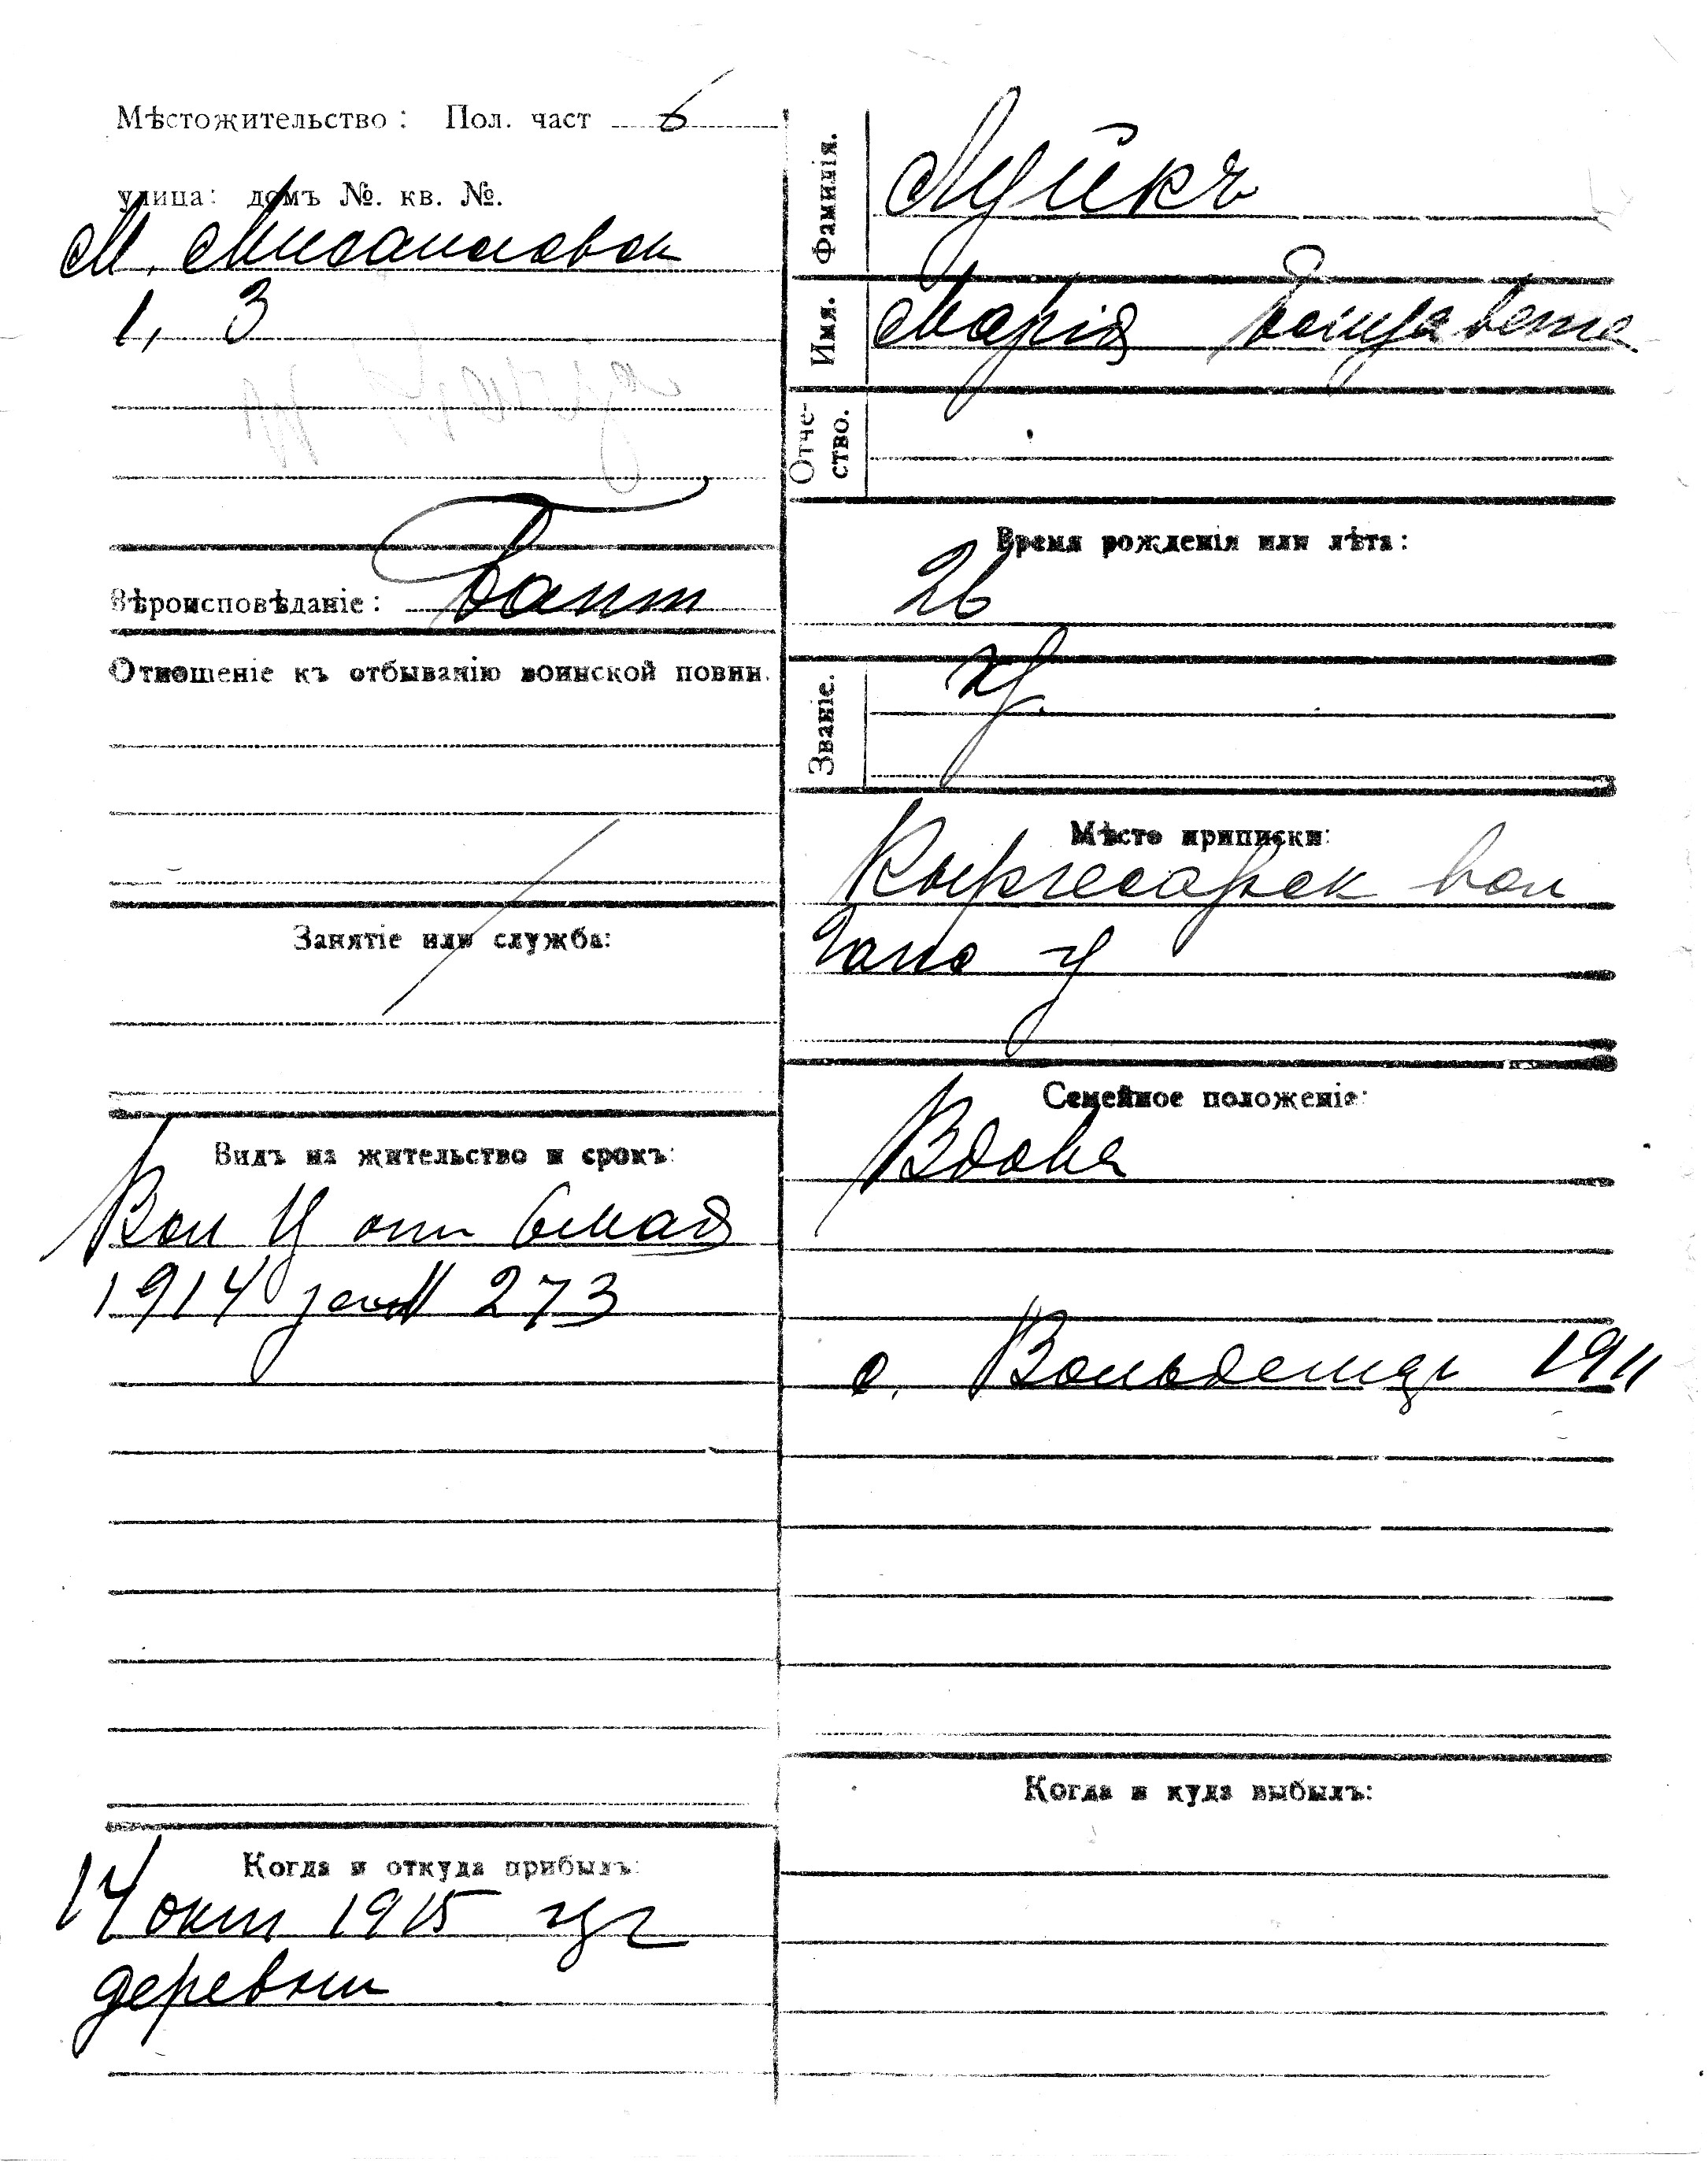 Мѣстожительство: Пол. част 6
улица: домъ №. кв. №.
М. Михайловск
1, 3
Вѣроисповѣданіе: Бапт
Отношеніе къ отбыванію воинской повин.
Занятіе или служба:
Видъ на жительство и срокъ:
Вол У от 6 мая
1914 273
Когда и откуда прибылъ:
14 окт 1915 из
деревни
Фамилія. Луйкъ
Имя. Марія Елизавета
Отче-
ство.
Время рожденія или лѣта:
26
Званіе. К.
Мѣсто приписки:
Кыргесарск вол
Гапс у
Семейное положеніе:
Вдова
с. Вольдемар 1911
Когда и куда выбылъ: